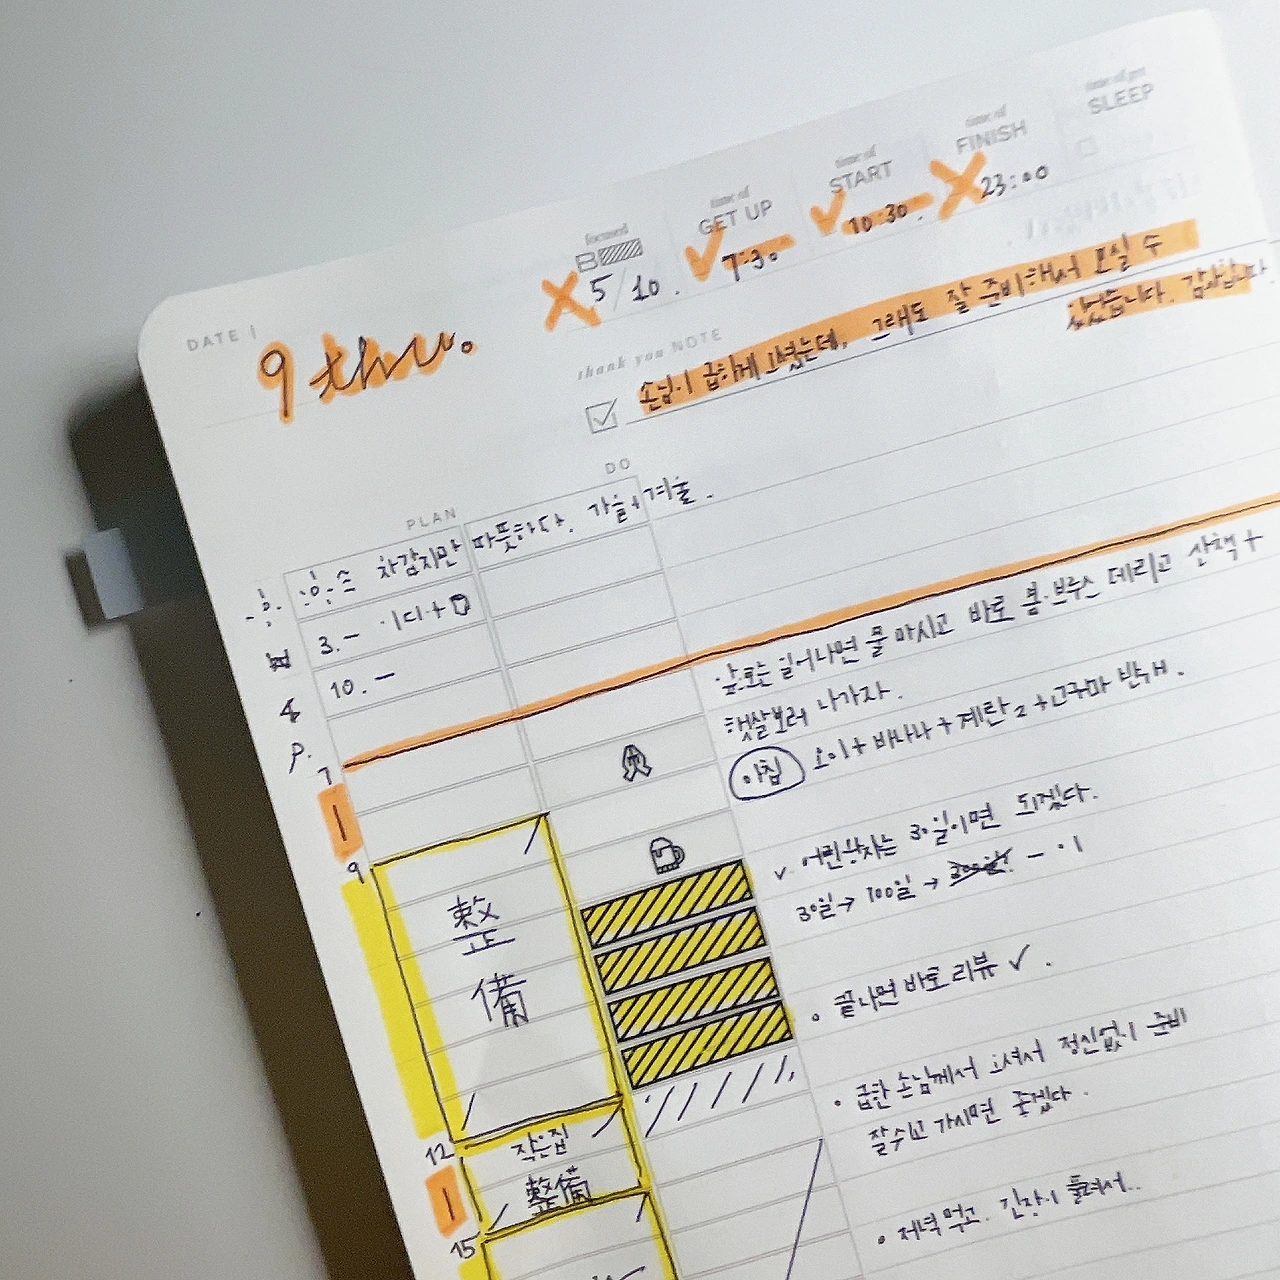 time of get
SLEEP
time of
FINISH
23:00
time of
START
10:30.
time of
GET UP
7:30
focused
5/10.
DATE
9 thu.
thank you NOTE
손님이 급하게 오셨는데, 그래도 잘 준비해서 모실 수
있었습니다. 감사합니다.
PLAN
DO
차갑지만 따뜻하다. 가을+겨울.
3.-
10.-
P.
앞으로는 일어나면 물 마시고 바로 봄·브루스 데리고 산책+
햇살보러 나가자.
아침 오이+바나나+계란2+고구마 반개.
7
9
整
備
어린왕자는 30일이면 되겠다.
30일→100일→
• 끝나면 바로 리뷰 ✓.
• 급한 손님께서 오셔서 정신없이 준비
잘 쉬고 가시면 좋겠다.
12
작은집
整備
15
• 저녁 먹고. 긴장이 풀려서..